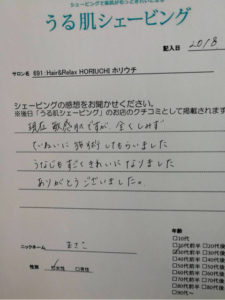 シェービングと素肌がもっときれいになる
うる肌シェービング
記入日 2018
サロン名 691:Hair&Relax HORIUCHI ホリウチ
シェービングの感想をお聞かせください。
※後日「うる肌シェービング」のお店のクチコミとして掲載されます
現在敏感肌ですが全くしみず
ていねいに施術してもらいました
うなじもすごくきれいになりました
ありがとうございました。
ニックネーム まさこ
性別 ☑女性 □男性
年齢
□10代
□20代前半 □20代後
☑30代前半 □30代後
□40代前半 □40代後
□50代前半 □50代後
□60代前半 □60代後
□70代前半 □70代後
□80代前半 □80代後
□90代~